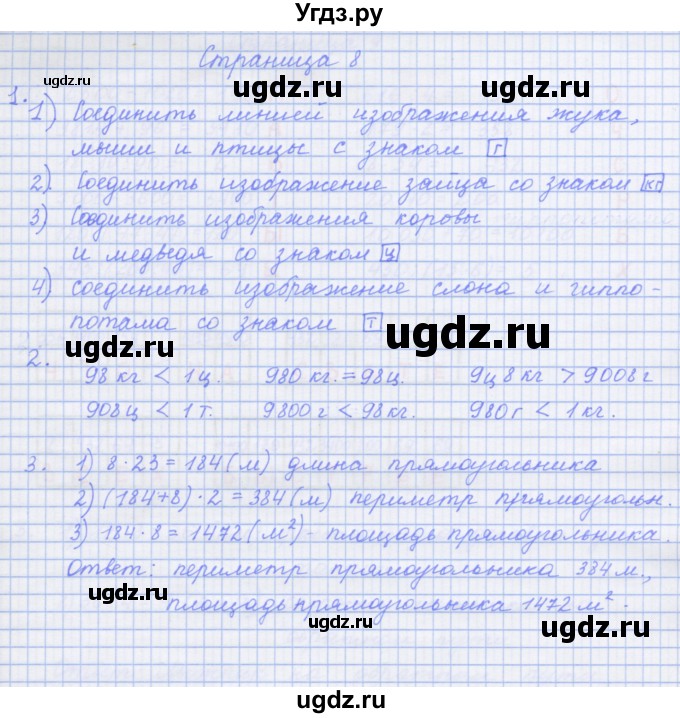 Угдз.ру
Страница 8
1. 1) Соединить линией изображения жука,
мыши и птицы с знаком г
2) Соединить изображение зайца со знаком кг
3) Соединить изображения коровы
и медведя со знаком ц
4) соединить изображение слона и гиппо-
потама со знаком т
2.
98 кг < 1 ц. 980 кг. = 98 ц. 9 ц 8 кг > 9008 г
908 ц < 1 т. 9800 г < 98 кг. 980 г < 1 кг.
3. 1) 8 · 23 = 184 (м) длина прямоугольника
2) (184+8) · 2 = 384 (м) периметр прямоугольн.
3) 184 · 8 = 1472 (м²) - площадь прямоугольника.
Ответ: периметр прямоугольника 384 м.,
площадь прямоугольника 1472 м².
ugdz.ru
ugdz.ru
ugdz.ru
ugdz.ru
ugdz.ru
ugdz.ru
ugdz.ru
ugdz.ru
ugdz.ru
ugdz.ru
ugdz.ru
ugdz.ru